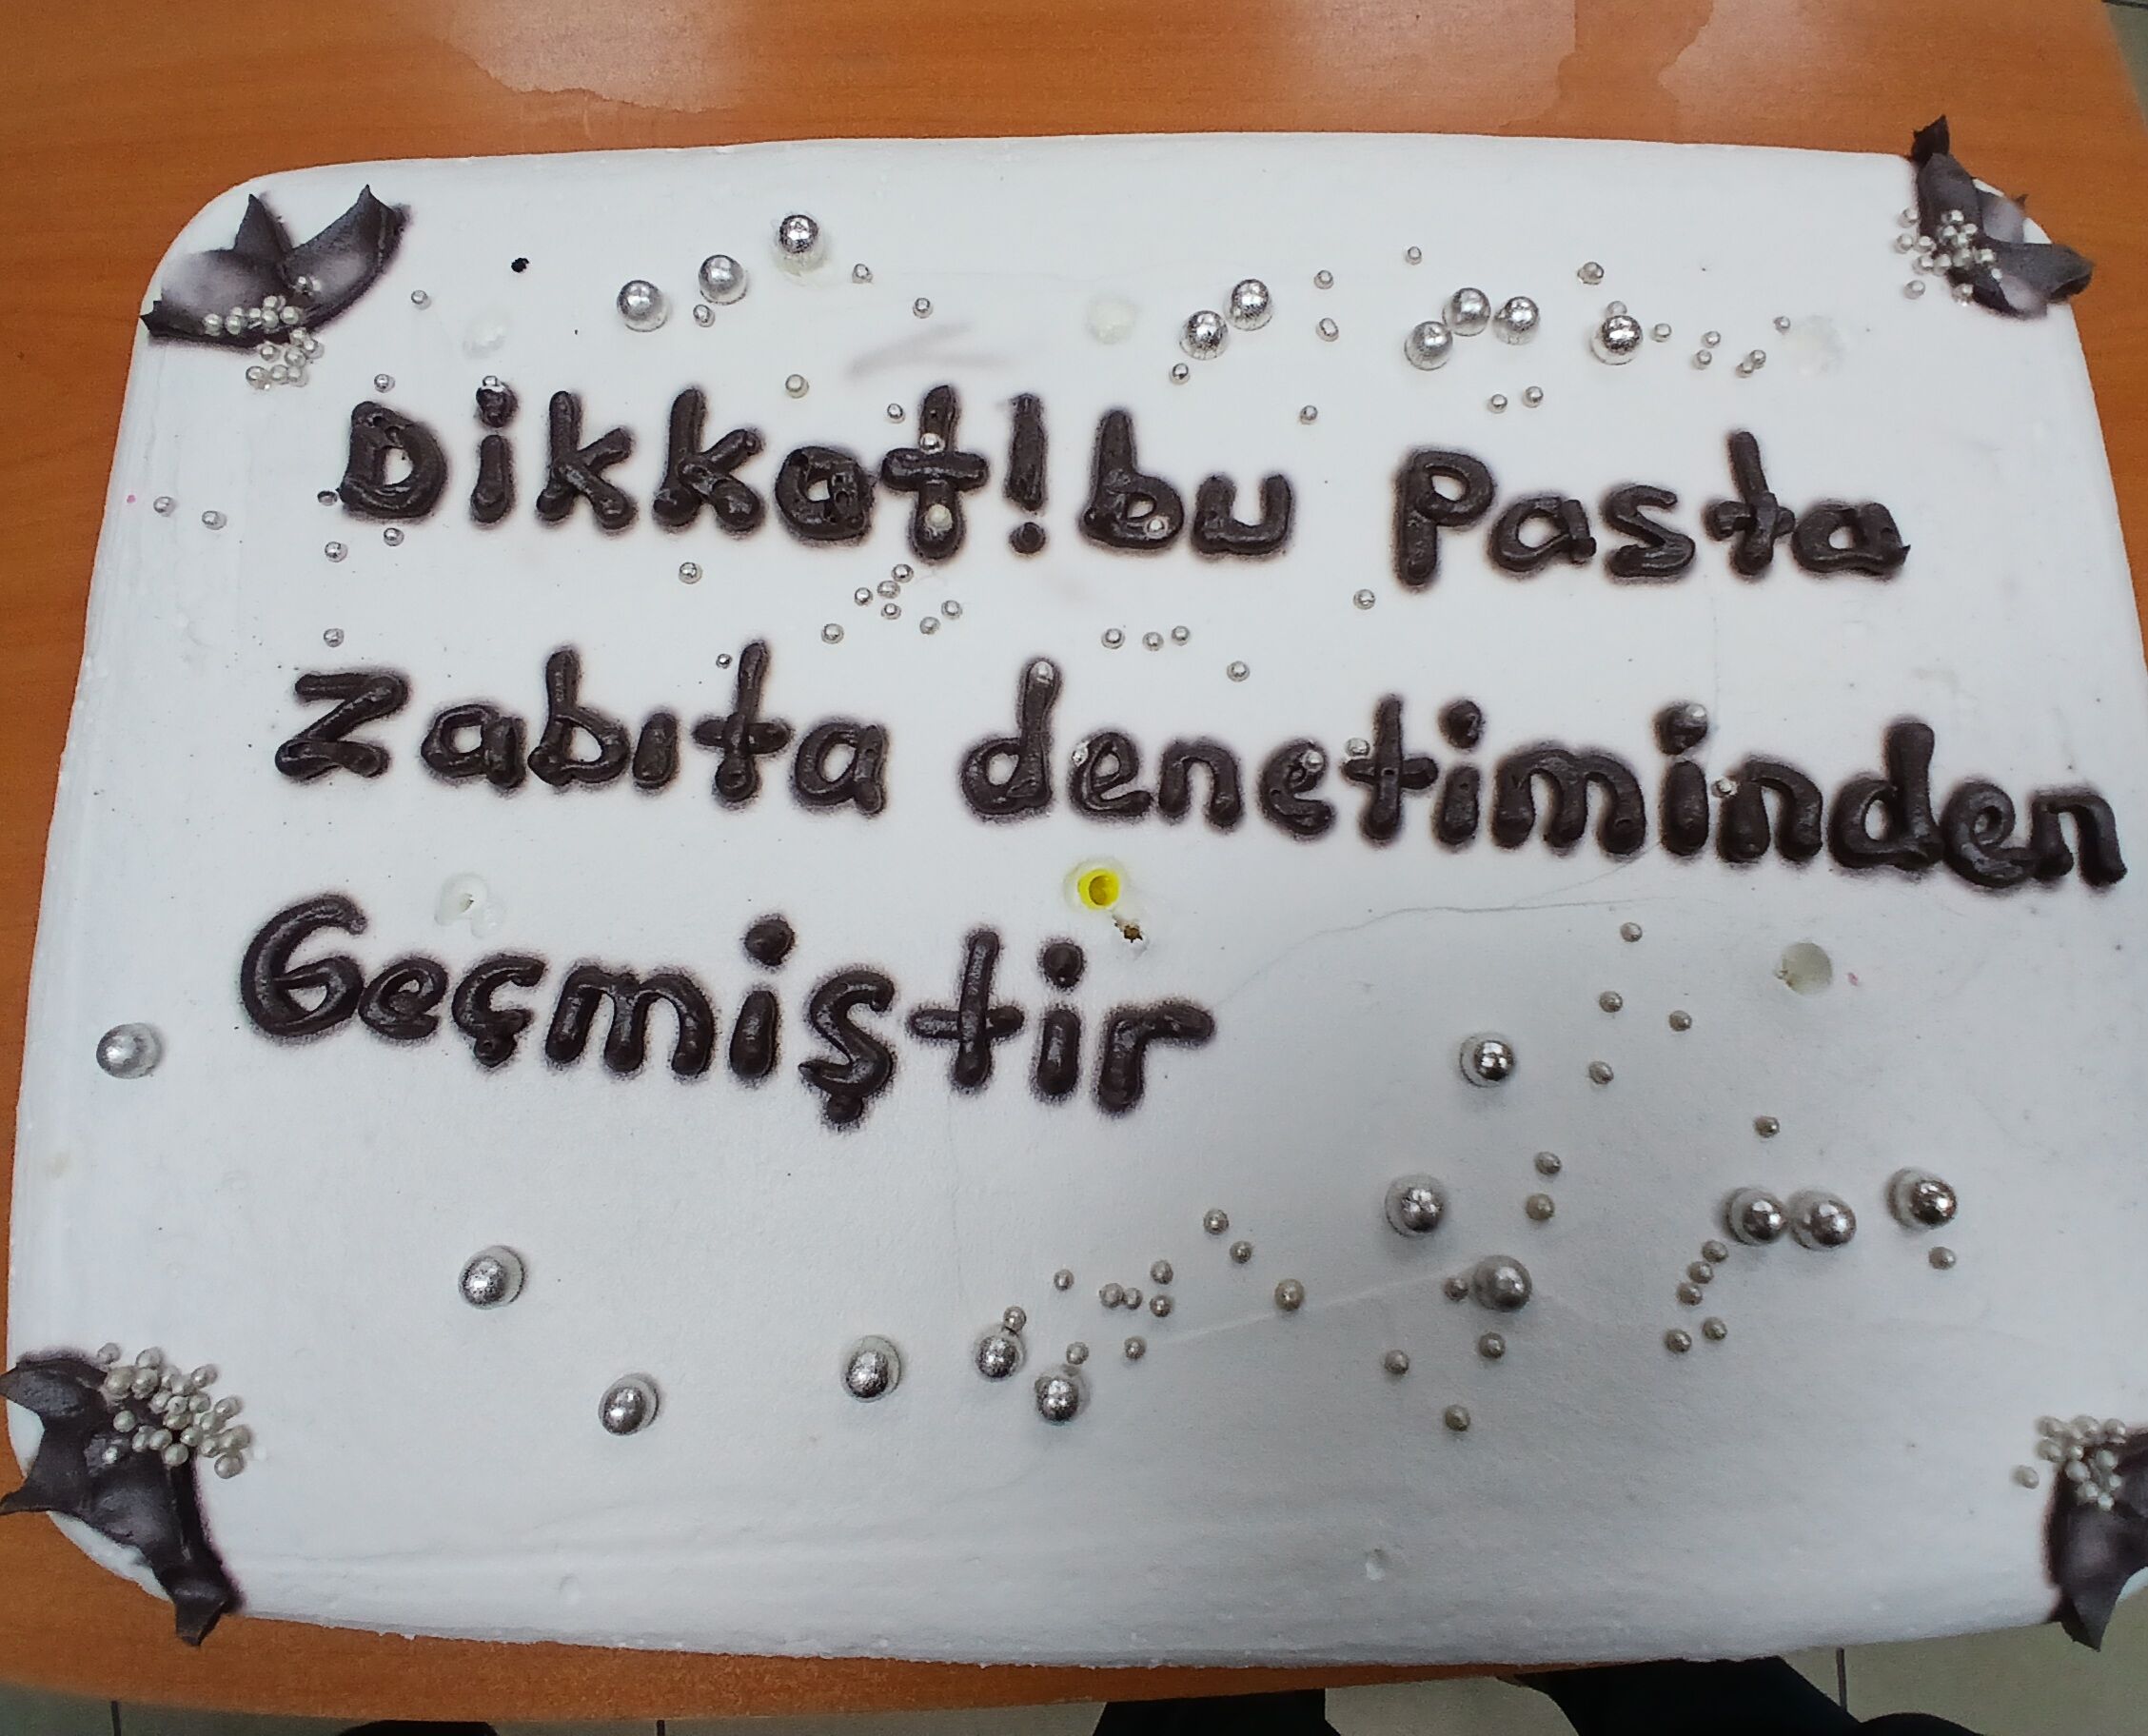 Dikkat! bu Pasta
Zabıta denetiminden
Geçmiştir